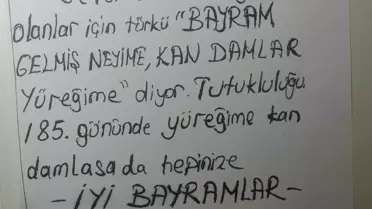 olanlar için türkü "BAYRAM
GELMİŞ NEYİME, KAN DAMLAR
Yüreğime" diyor. Tutukluluğu
185. gününde yüreğime kan
damlasa da hepinize
- İYİ BAYRAMLAR -